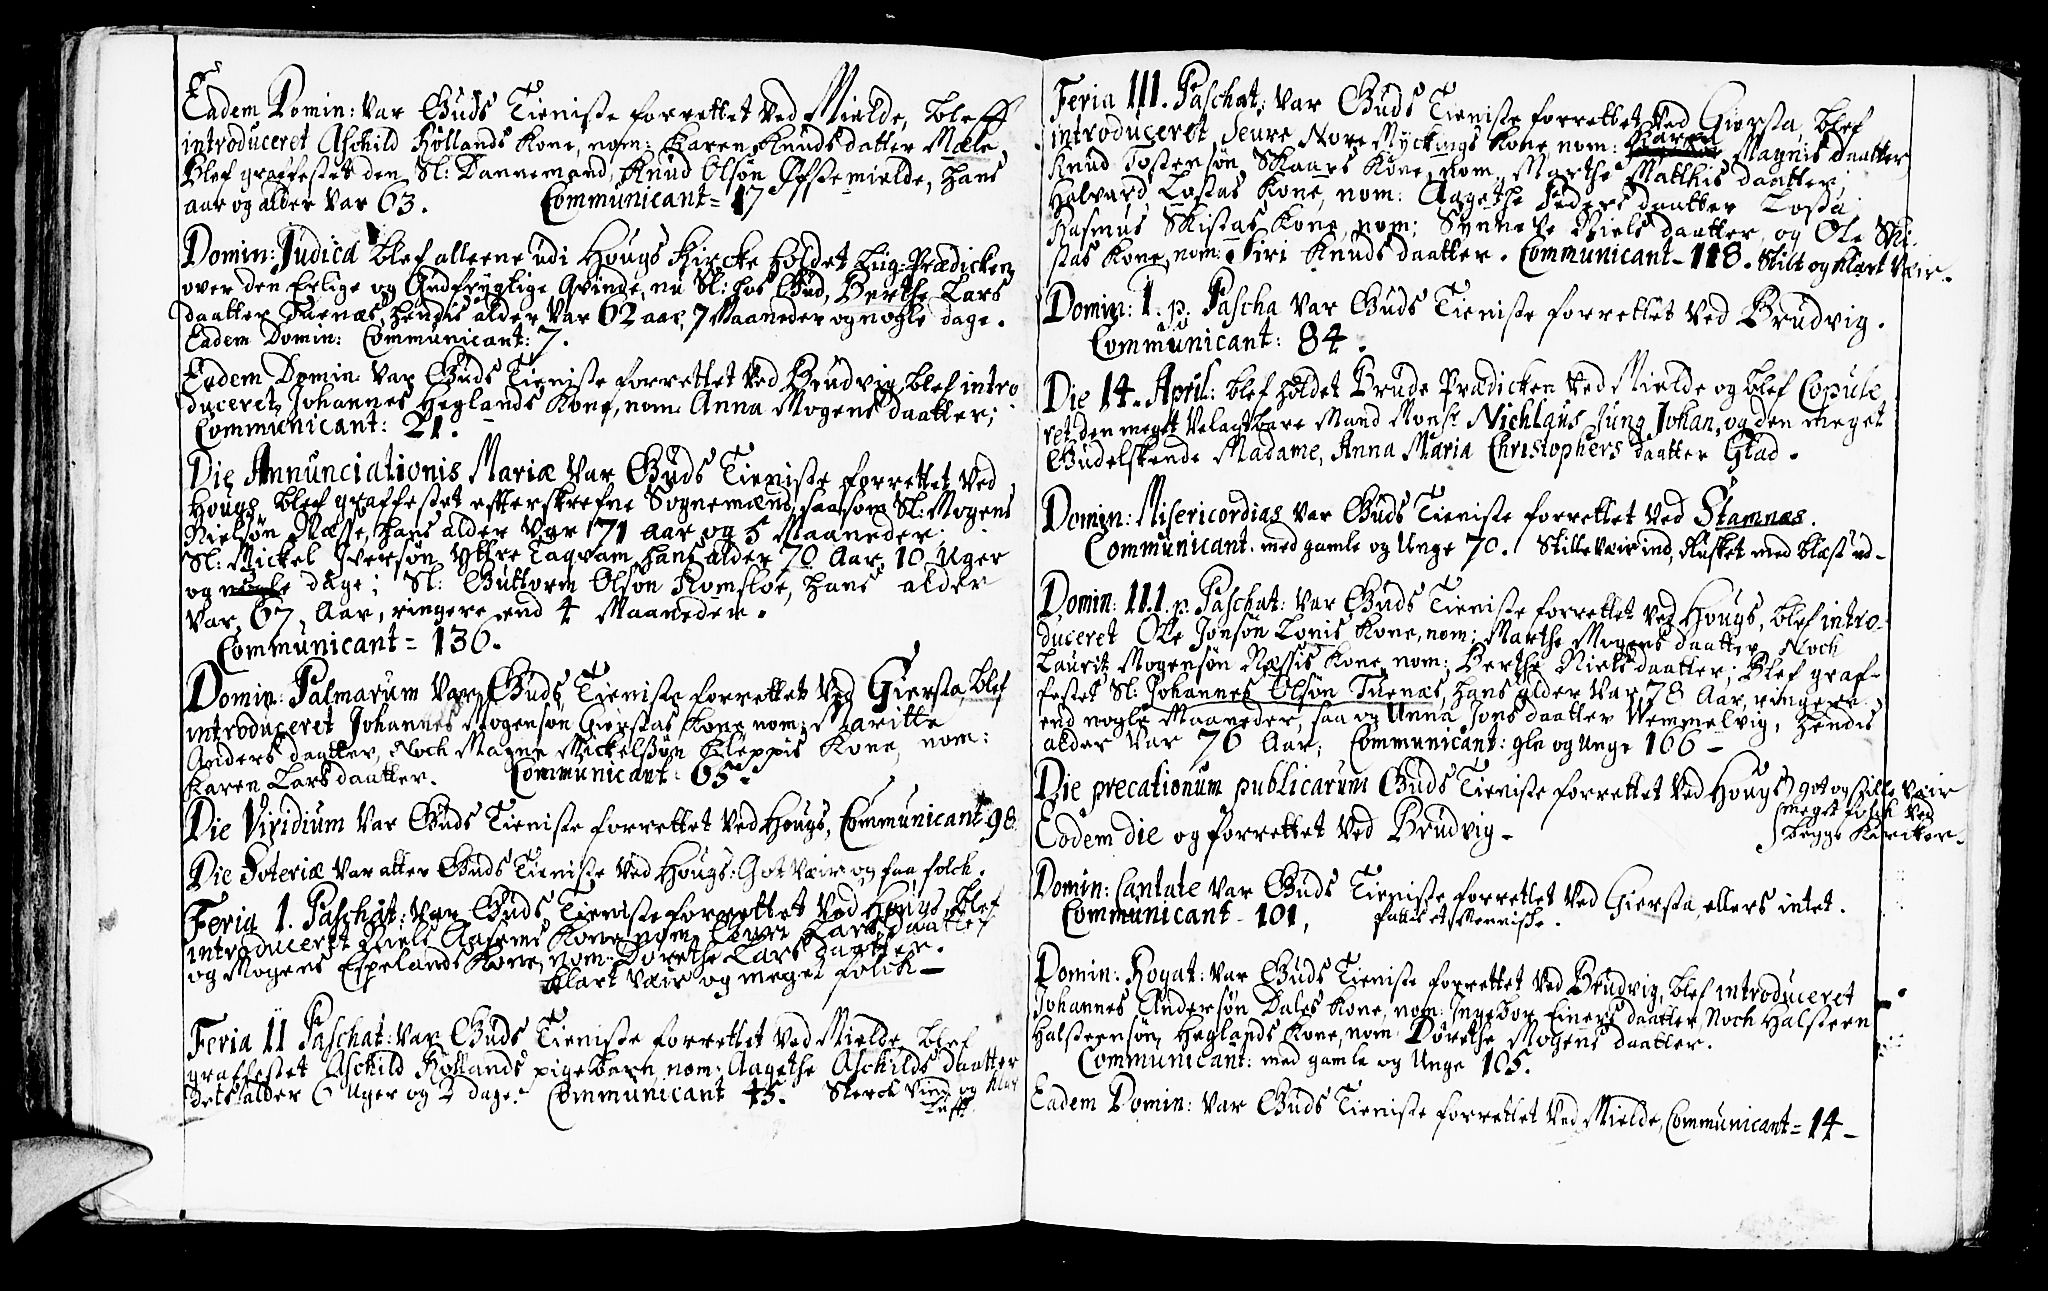 Eadem Domin: Var Guds Tieniste forrettet ved Mielde, bleff
introduceret Aschild Hollands Kone, nom: Karen Knudsdatter Mæle
Blef graffestet den Sl: Dannemand, Knud Olsøn Øfstemielde, hans
aar og alder var 63. Communicant = 17
Domin: Judica blef alleene udi Hougs Kircke holdet Liig-Prædicken
over den Erlige og Gudfrygtige Qvinde, nu Sl: hos Gud, Berthe Lars
daatter Tuenæs, hendis alder var 62 aar, 7 Maaneder og nogle dage.
Eadem Domin: Communicant: 7.
Eadem Domin: Var Guds Tieniste forrettet ved Brudvig, blef intro
duceret Johannes Heglands Kone, nom: Anna Mogens daatter;
Communicant: 21.
Die Annunciationis Mariæ Var Guds Tieniste forrettet ved
Hougs, blef graffestet efterskrefne Sognemænd, saasom Sl: Mogens
Nielsøn Næsse, hans alder var 71 aar og 5 Maaneder.
Sl: Mickel Iversøn Yttre Taqvam, hans alder 70 Aar, 10 Uger
og nogle dage; Sl: Guttorm Olsøn Romsloe, hans alder
var 67 Aar, ringere end 4 Maaneder.
Communicant = 136.
Domin: Palmarum Var Guds Tieniste forrettet ved Giersta, blef
introduceret Johannes Mogensøn Gierstas Kone nom: Maritte
Anders daatter, Noch Magne Mickelsøn Kleppis Kone, nom:
Karen Lars daatter. Communicant: 65.
Die Viridium Var Guds Tieniste forrettet ved Hougs, Communicant 98
Die Soteriæ Var atter Guds Tieniste ved Hougs: Got Væir og faa folck.
Feria 1. Paschat: Var Guds Tieniste forrettet ved Hougs, Blef
introduceret Niels Aasems Kone nom: Lars daatter
og Mogens Espelands Kone, nom: Dorethe Lars daatter.
Klart væir og meget folck —
Feria II Paschat: Var Guds Tieniste forrettet ved Mielde, blef
graffestet Aschild Hollands pigebarn nom: Aagethe Aschilds daatter
dets alder 6 Uger og 2 dage. Communicant 45. Sterck Vind og klar
Lufft
Feria III. Paschat: Var Guds Tieniste forrettet ved Giersta, blef
introduceret Seure Nore Myckings Kone nom: Karen Magnis daatter,
Knud Tostensøn Skaars Kone, nom: Marthe Matthis daatter;
Halvard Lostas Kone, nom: Aagethe Peders daatter Losta
Rasmus Skistas Kone, nom: Synneve Niels daatter, og Ole Ski-
stas Kone, nom: Siri Knuds daatter. Communicant - 118. Stilt og klart væir.
Domin: 1. p. Pascha Var Guds Tieniste forrettet ved Brudvig.
Communicant: 84.
Die 14. April: blef holdet Brude Prædicken ved Mielde og blef Copule
ret den meget Velagtbare Mand Monsr Nichlaus Jung Johan, og den meget
Gudelskende Madame, Anna Maria Christophers daatter Glad.
Domin: Misericordias Var Guds Tieniste forrettet ved Stamnæs.
Communicant. med gamle og Unge 70. Stille væir ind, Rusket med blæst ud-
Domin: III. p. Paschat: Var Guds Tieniste forrettet ved Hougs, blef intro-
duceret Ole Jonsøn Lonis Kone, nom: Marthe Mogens daatter, Noch
Lauritz Mogensøn Næssis Kone, nom: Berthe Niels daatter; Blef graf-
festet Sl: Johannes Olsøn Tuenæs, hans alder var 78 Aar, ringere
end nogle Maaneder, saa og Anna Jons daatter Wemmelvig, hendis
alder var 76 Aar; Communicant: gle og Unge 166 —
Die precationum publicarum Guds Tieniste forrettet ved Hougs got og stille væir
meget folck ved
Eodem die og forrettet ved Brudvig - begge Kircker.
Domin: Cantate Var Guds Tieniste forrettet ved Giersta, ellers intet.
Communicant - 101, Mennische.
Domin: Rogat: Var Guds Tieniste forrettet ved Brudvig, blef introduceret
Johannes Andersøn Dales Kone, nom: Ingebor Einers daatter, Noch Halsteen
Halsteensøn Heglands Kone, nom: Dorethe Mogens daatter.
Communicant: med gamle og Unge 105.
Eadem Domin: Var Guds Tieniste forrettet ved Mielde, Communicant = 14 —